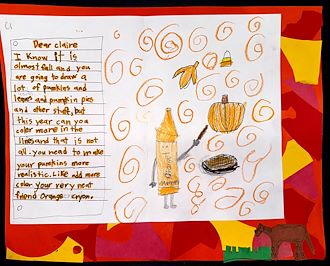 Dear claire
I know it is
almost fall and you
are going to draw a
lot of pumpkins and
leaves and pumpkin pies
and other stuff, but
this year can you
color more in the
lines and that is not
all. you need to make
your pumkins more
realistic. Like add more
color your very neat
friend Orange crayon.